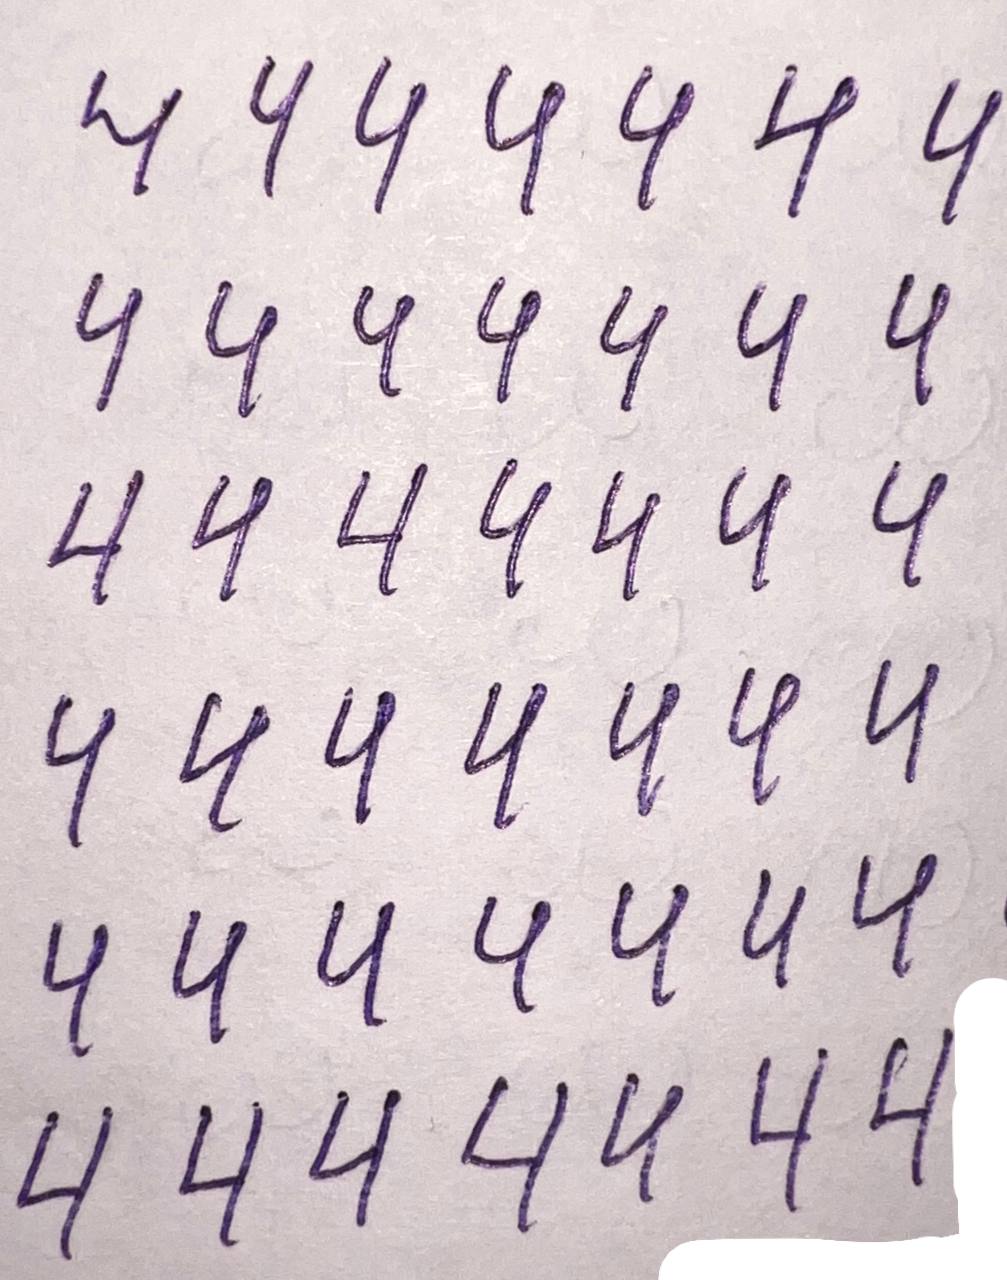 4 4 4 4 4 4 4
4 4 4 4 4 4 4
4 4 4 4 4 4 4
4 4 4 4 4 4 4
4 4 4 4 4 4 4
4 4 4 4 4 4 4